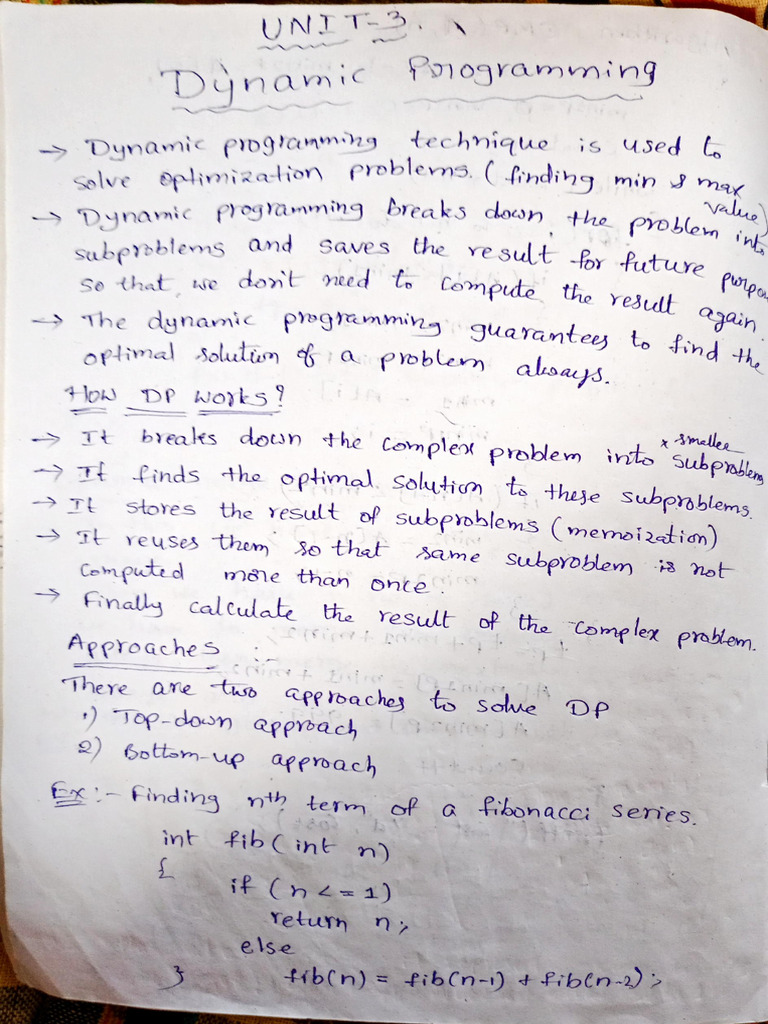 UNIT-3.
Dynamic Programming
→ Dynamic programming technique is used to
solve optimization problems. (finding min & max
value)
→ Dynamic programming breaks down the problem into
subproblems and saves the result for future purpo
so that we don't need to compute the result again.
→ The dynamic programming guarantees to find the
optimal solution of a problem always.
How DP works?
→ It breaks down the complex problem into x smaller
subproblems
→ It finds the optimal solution to these subproblems.
→ It stores the result of subproblems (memoization)
→ It reuses them so that same subproblem is not
computed more than once.
→ Finally calculate the result of the complex problem.
Approaches :
There are two approaches to solve DP
1) Top-down approach
2) Bottom-up approach
Ex:- Finding nth term of a fibonacci series.
int fib(int n)
{
if (n <= 1)
return n;
else
fib(n) = fib(n-1) + fib(n-2);
}